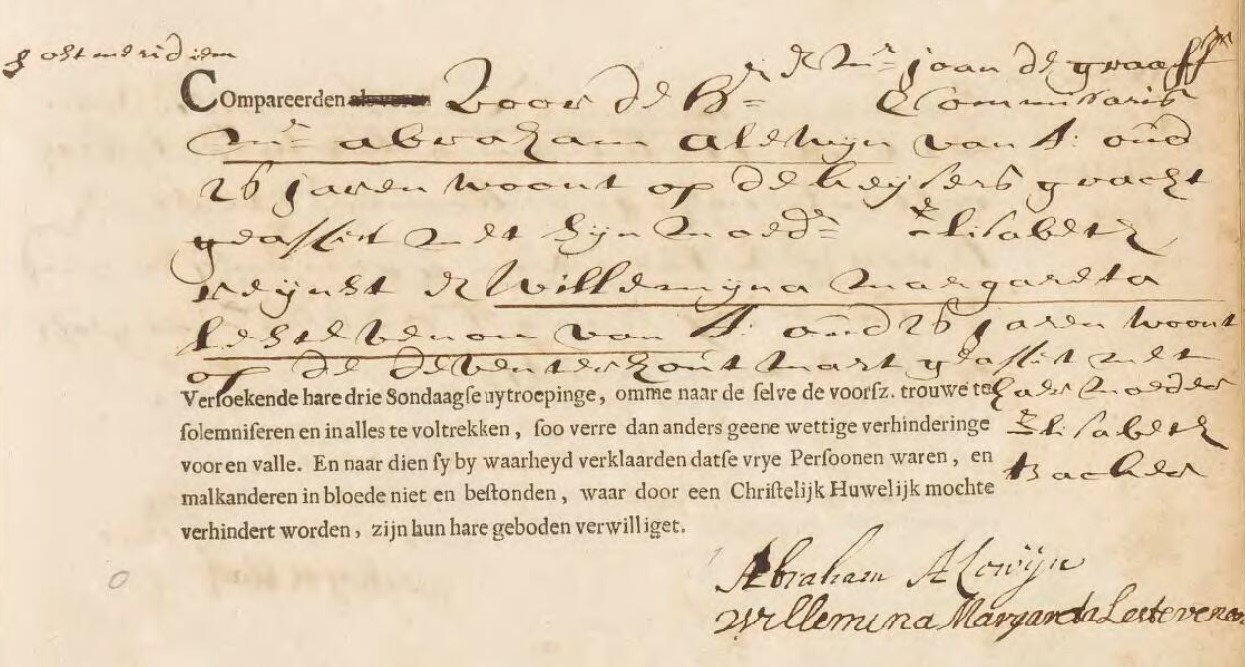 post meridiem
Compareerden als voren Voor de Hr & Mr. joan de graaff Commissaris
Mr. abraham alewijn van A: oud
26 jaren woont op de keijsers gracht
geassist met sijn moedr Elisabeth
reijnst & Willemijna margareta
Lestevenon van A: oud 26 jaren woont
op de deventer hout mart geassist met
haer moeder
Elisabeth
Backer
Versoekende hare drie Sondaagse uytroepinge, omme naar de selve de voorsz. trouwe te
solemniseren en in alles te voltrekken, soo verre dan anders geene wettige verhinderinge
voor en valle. En naar dien sy by waarheyd verklaarden datse vrye Persoonen waren, en
malkanderen in bloede niet en bestonden, waar door een Christelijk Huwelijk mochte
verhindert worden, zijn hun hare geboden verwilliget.
Abraham Alewijn
Willemina Margareta Lestevenon